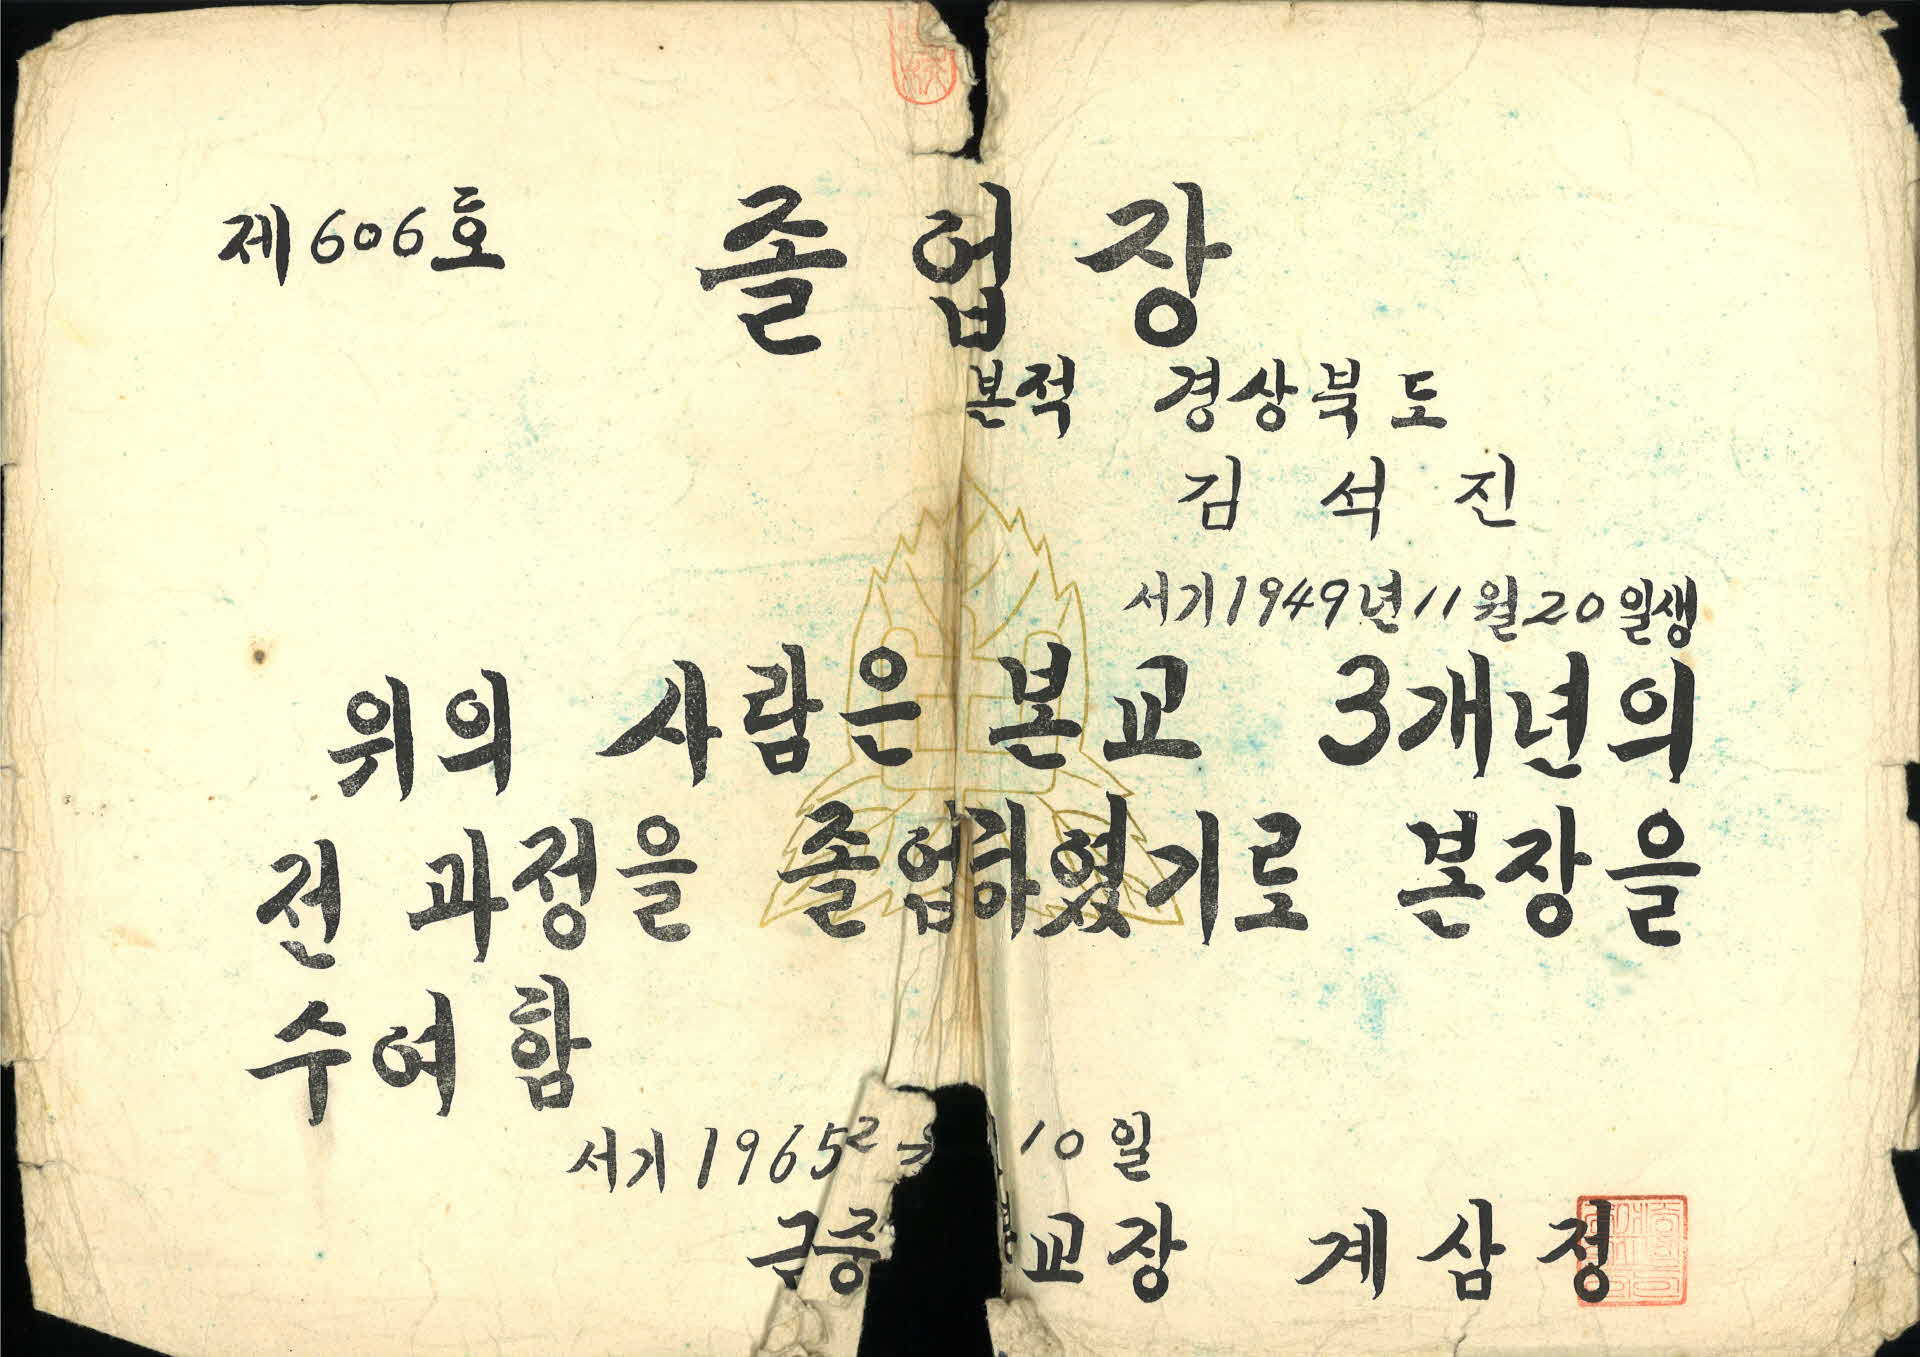 제606호
졸업장
본적 경상북도
김석진
서기1949년11월20일생
위의 사람은 본교 3개년의
전 과정을 졸업하였기로 본장을
수여함
서기1965 2 10일
교장 계삼정